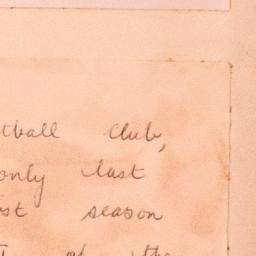 tball Club,
only last
st season
of the